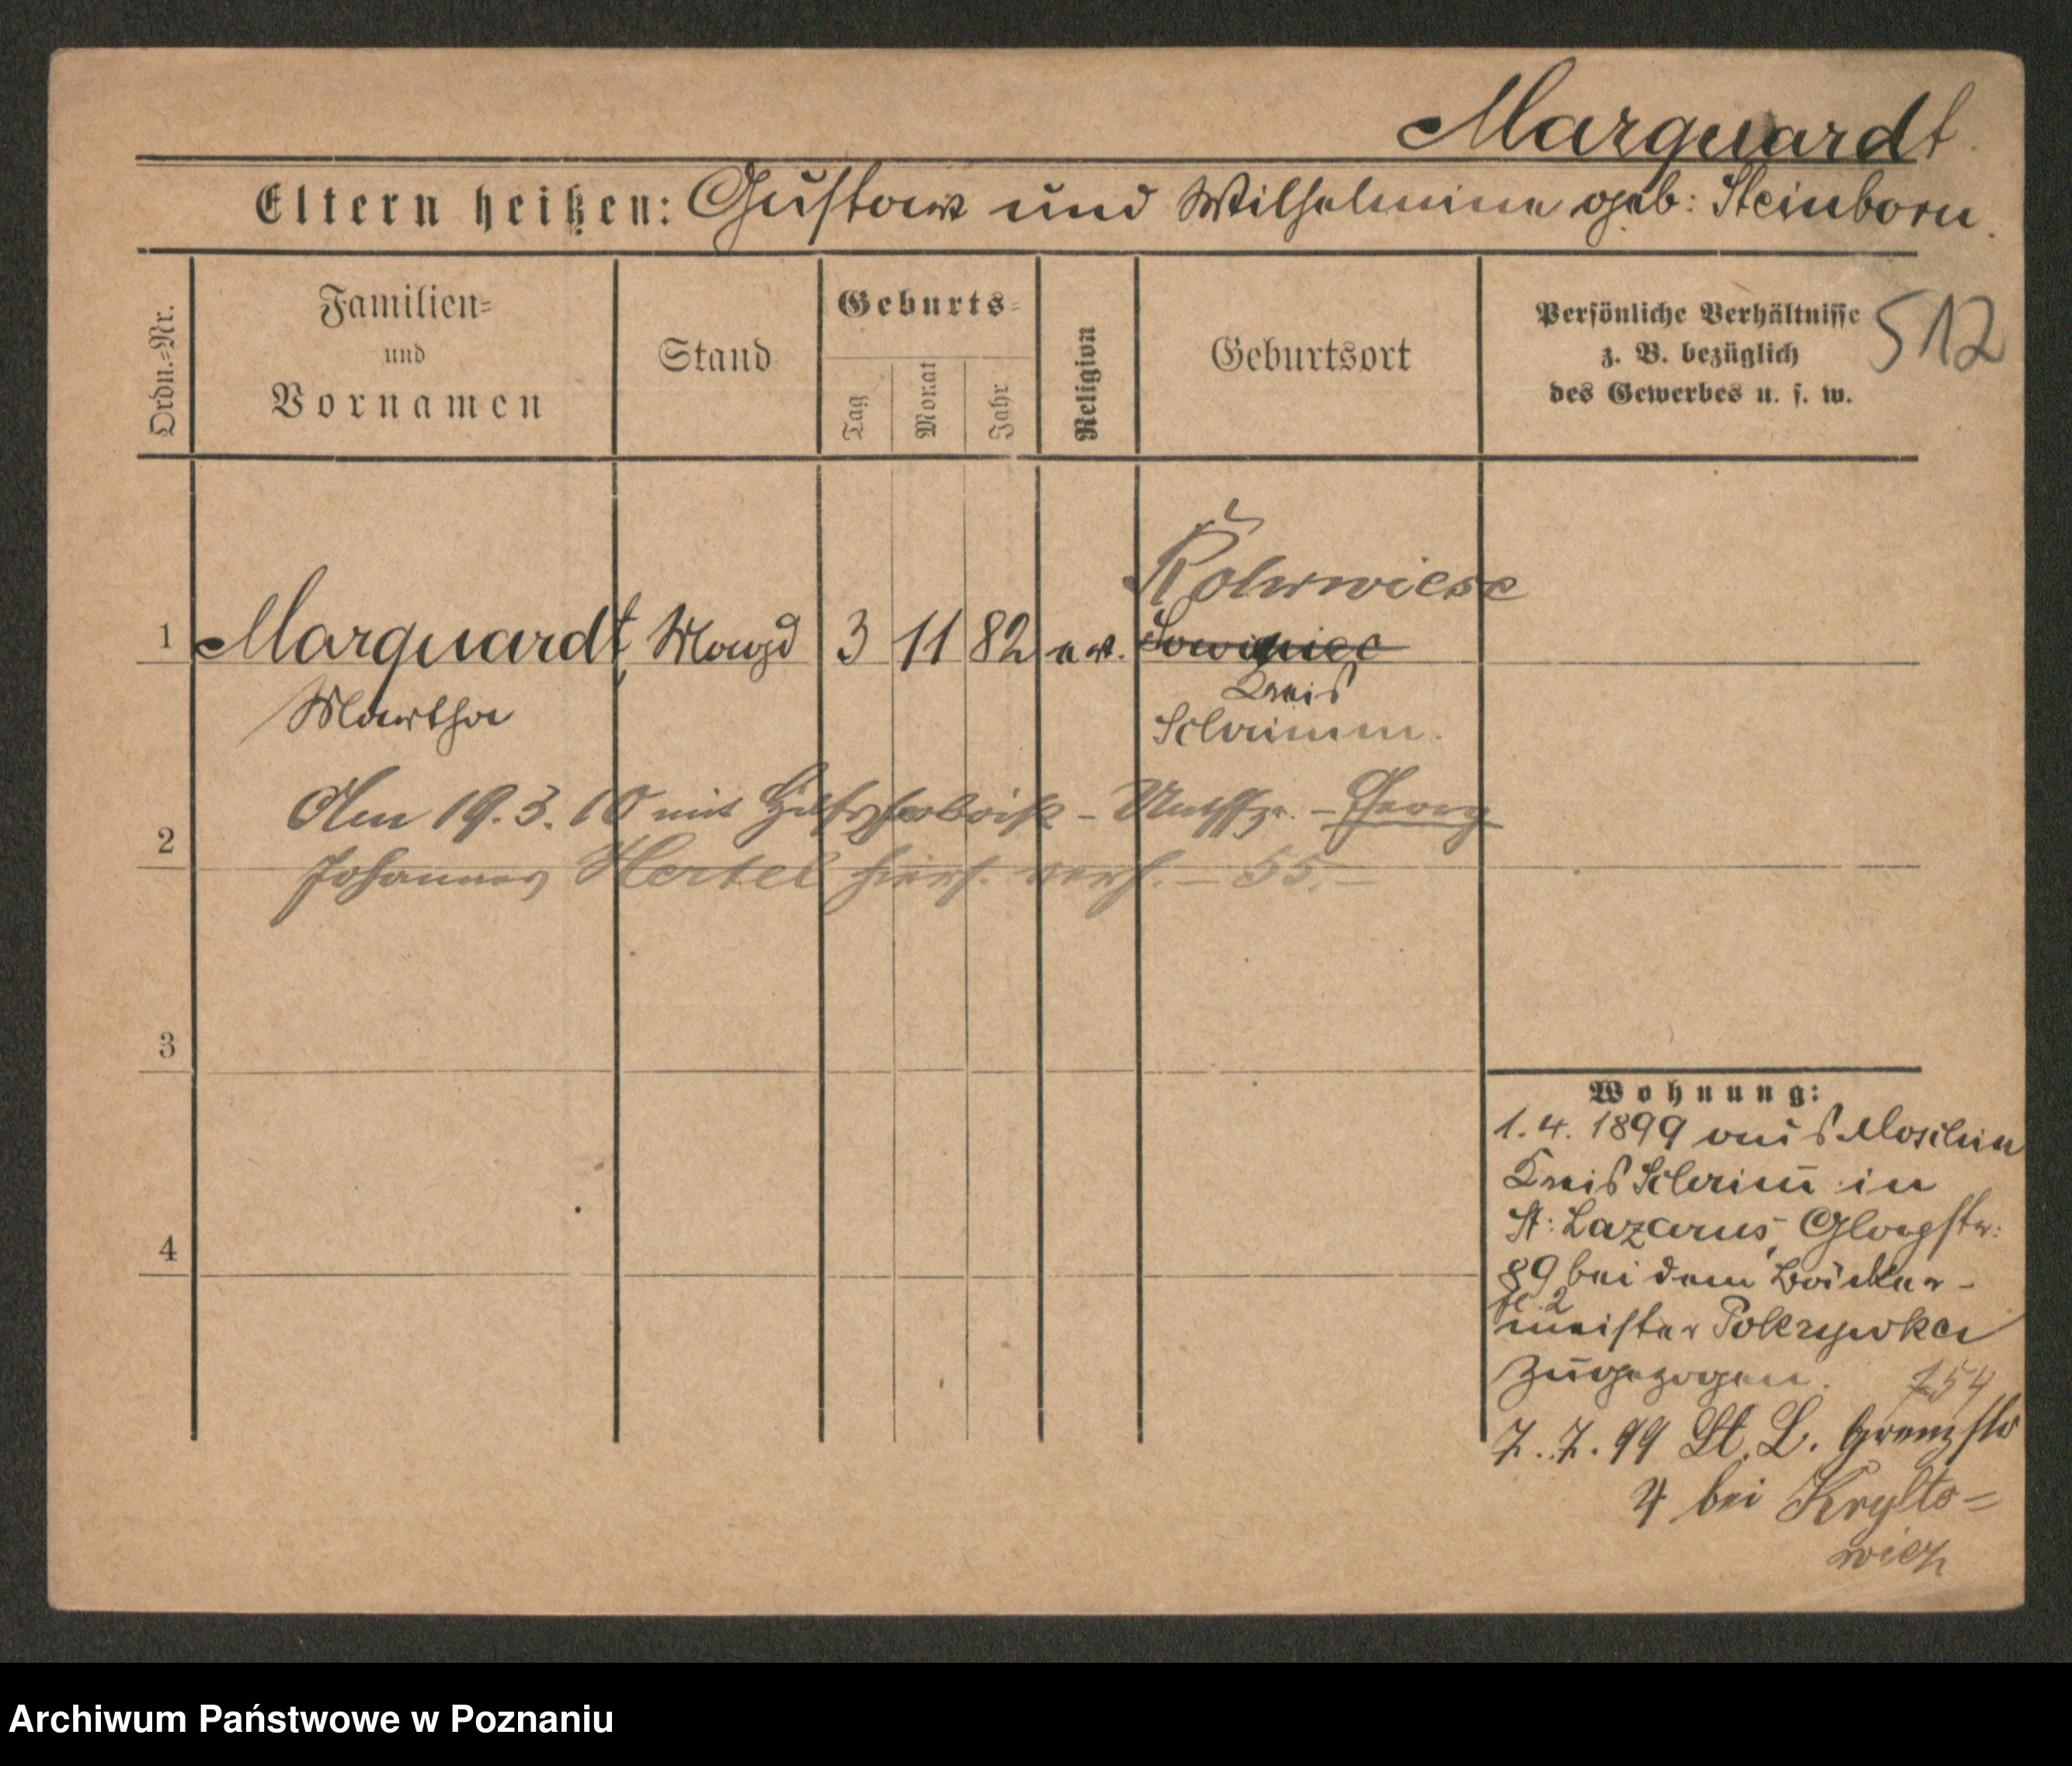 Marquardt
Eltern heißen: Gustav und Wilhelmine geb: Steinborn.
Ordn.=Nr.
Familien=
und
Vornamen
Stand
Geburts=
Tag
Monat
Jahr
Religion
Geburtsort
Persönliche Verhältnisse
z. B. bezüglich
des Gewerbes u. s. w.
512
Rohrwiese
1 Marquardt, Magd 3 11 82 ev. Sowiniec
Kreis
Martha
Schrimm.
Am 19.3.10 mit - Georg
2
Johannes Hertel hiers. verh. - 55. -
3
4
Wohnung:
1. 4. 1899 aus Moschin
Kreis Schrim̄ in
St: Lazarus, Glogstr:
89 bei dem Bäcker-
meister Pokrzywka
zugezogen. 754
7. 7. 99 St. L. Grenzstr
4 bei
wicz
Archiwum Państwowe w Poznaniu